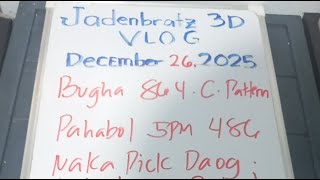 Jadenbratz 3D
VLOG
December 26.2025
Bugha 864.C.Pattern
Pahabol 5pm 486
Naka Pick Daog;